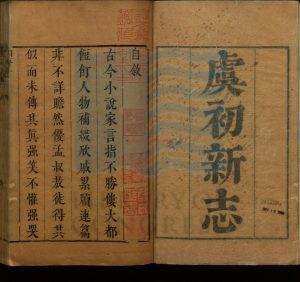 虞初新志
自敘
古今小說家言指不勝僂大都
飣餖人物補綴欣戚累牘連篇
非不詳贍然優孟叔敖徒得其
似而未傳其真强笑不懽强哭